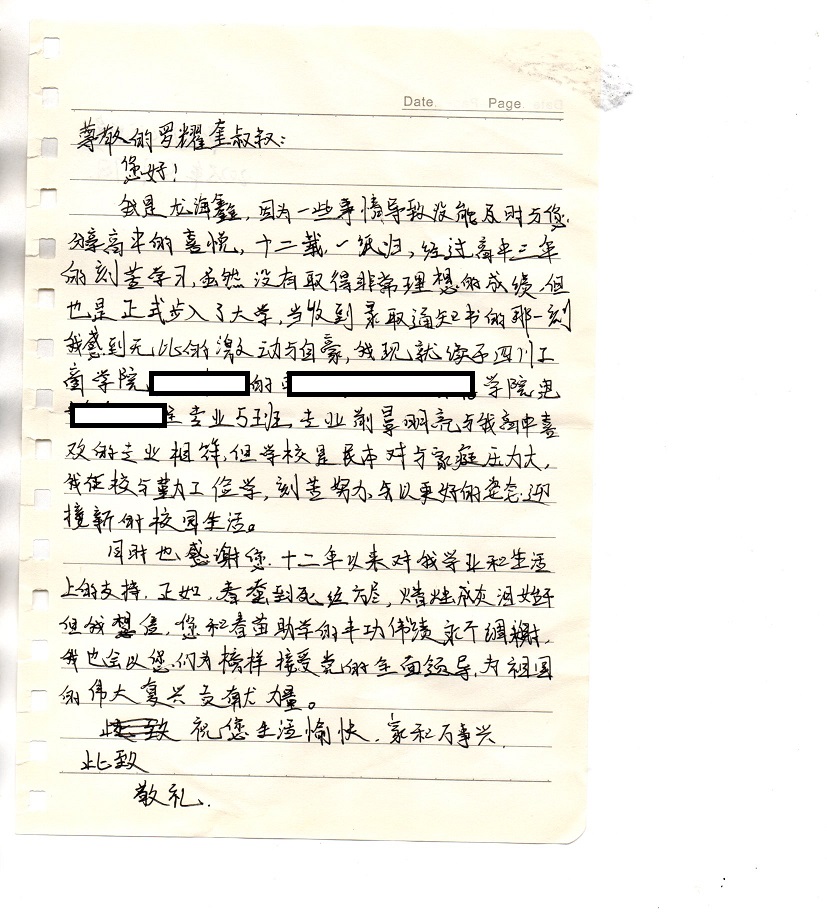 Date Page
尊敬的罗耀奎叔叔：
您好！
我是龙海鑫，因为一些事情导致没能及时与您
分享高中的喜悦，十二载，一纸归，经过高中三年
的刻苦学习，虽然没有取得非常理想的成绩，但
也是正式步入了大学，当收到录取通知书的那一刻
我感到无比的激动与自豪，我现就读于四川工
商学院 的 学院
专业5班，专业前景明亮与我高中喜
欢的专业相符，但学校是民本对与家庭压力大，
我在校与勤工俭学，刻苦努力，以更好的姿态迎
接新的校园生活。
同时也感谢您，十二年以来对我学业和生活
上的支持，正如，春蚕到死丝方尽，蜡炬成灰泪始干
但我想信，您和春苗助学的丰功伟绩永不凋谢，
我也会以您们为榜样接受党的全面领导，为祖国
的伟大复兴贡献力量。
祝您生活愉快，家和万事兴，
此致
敬礼.